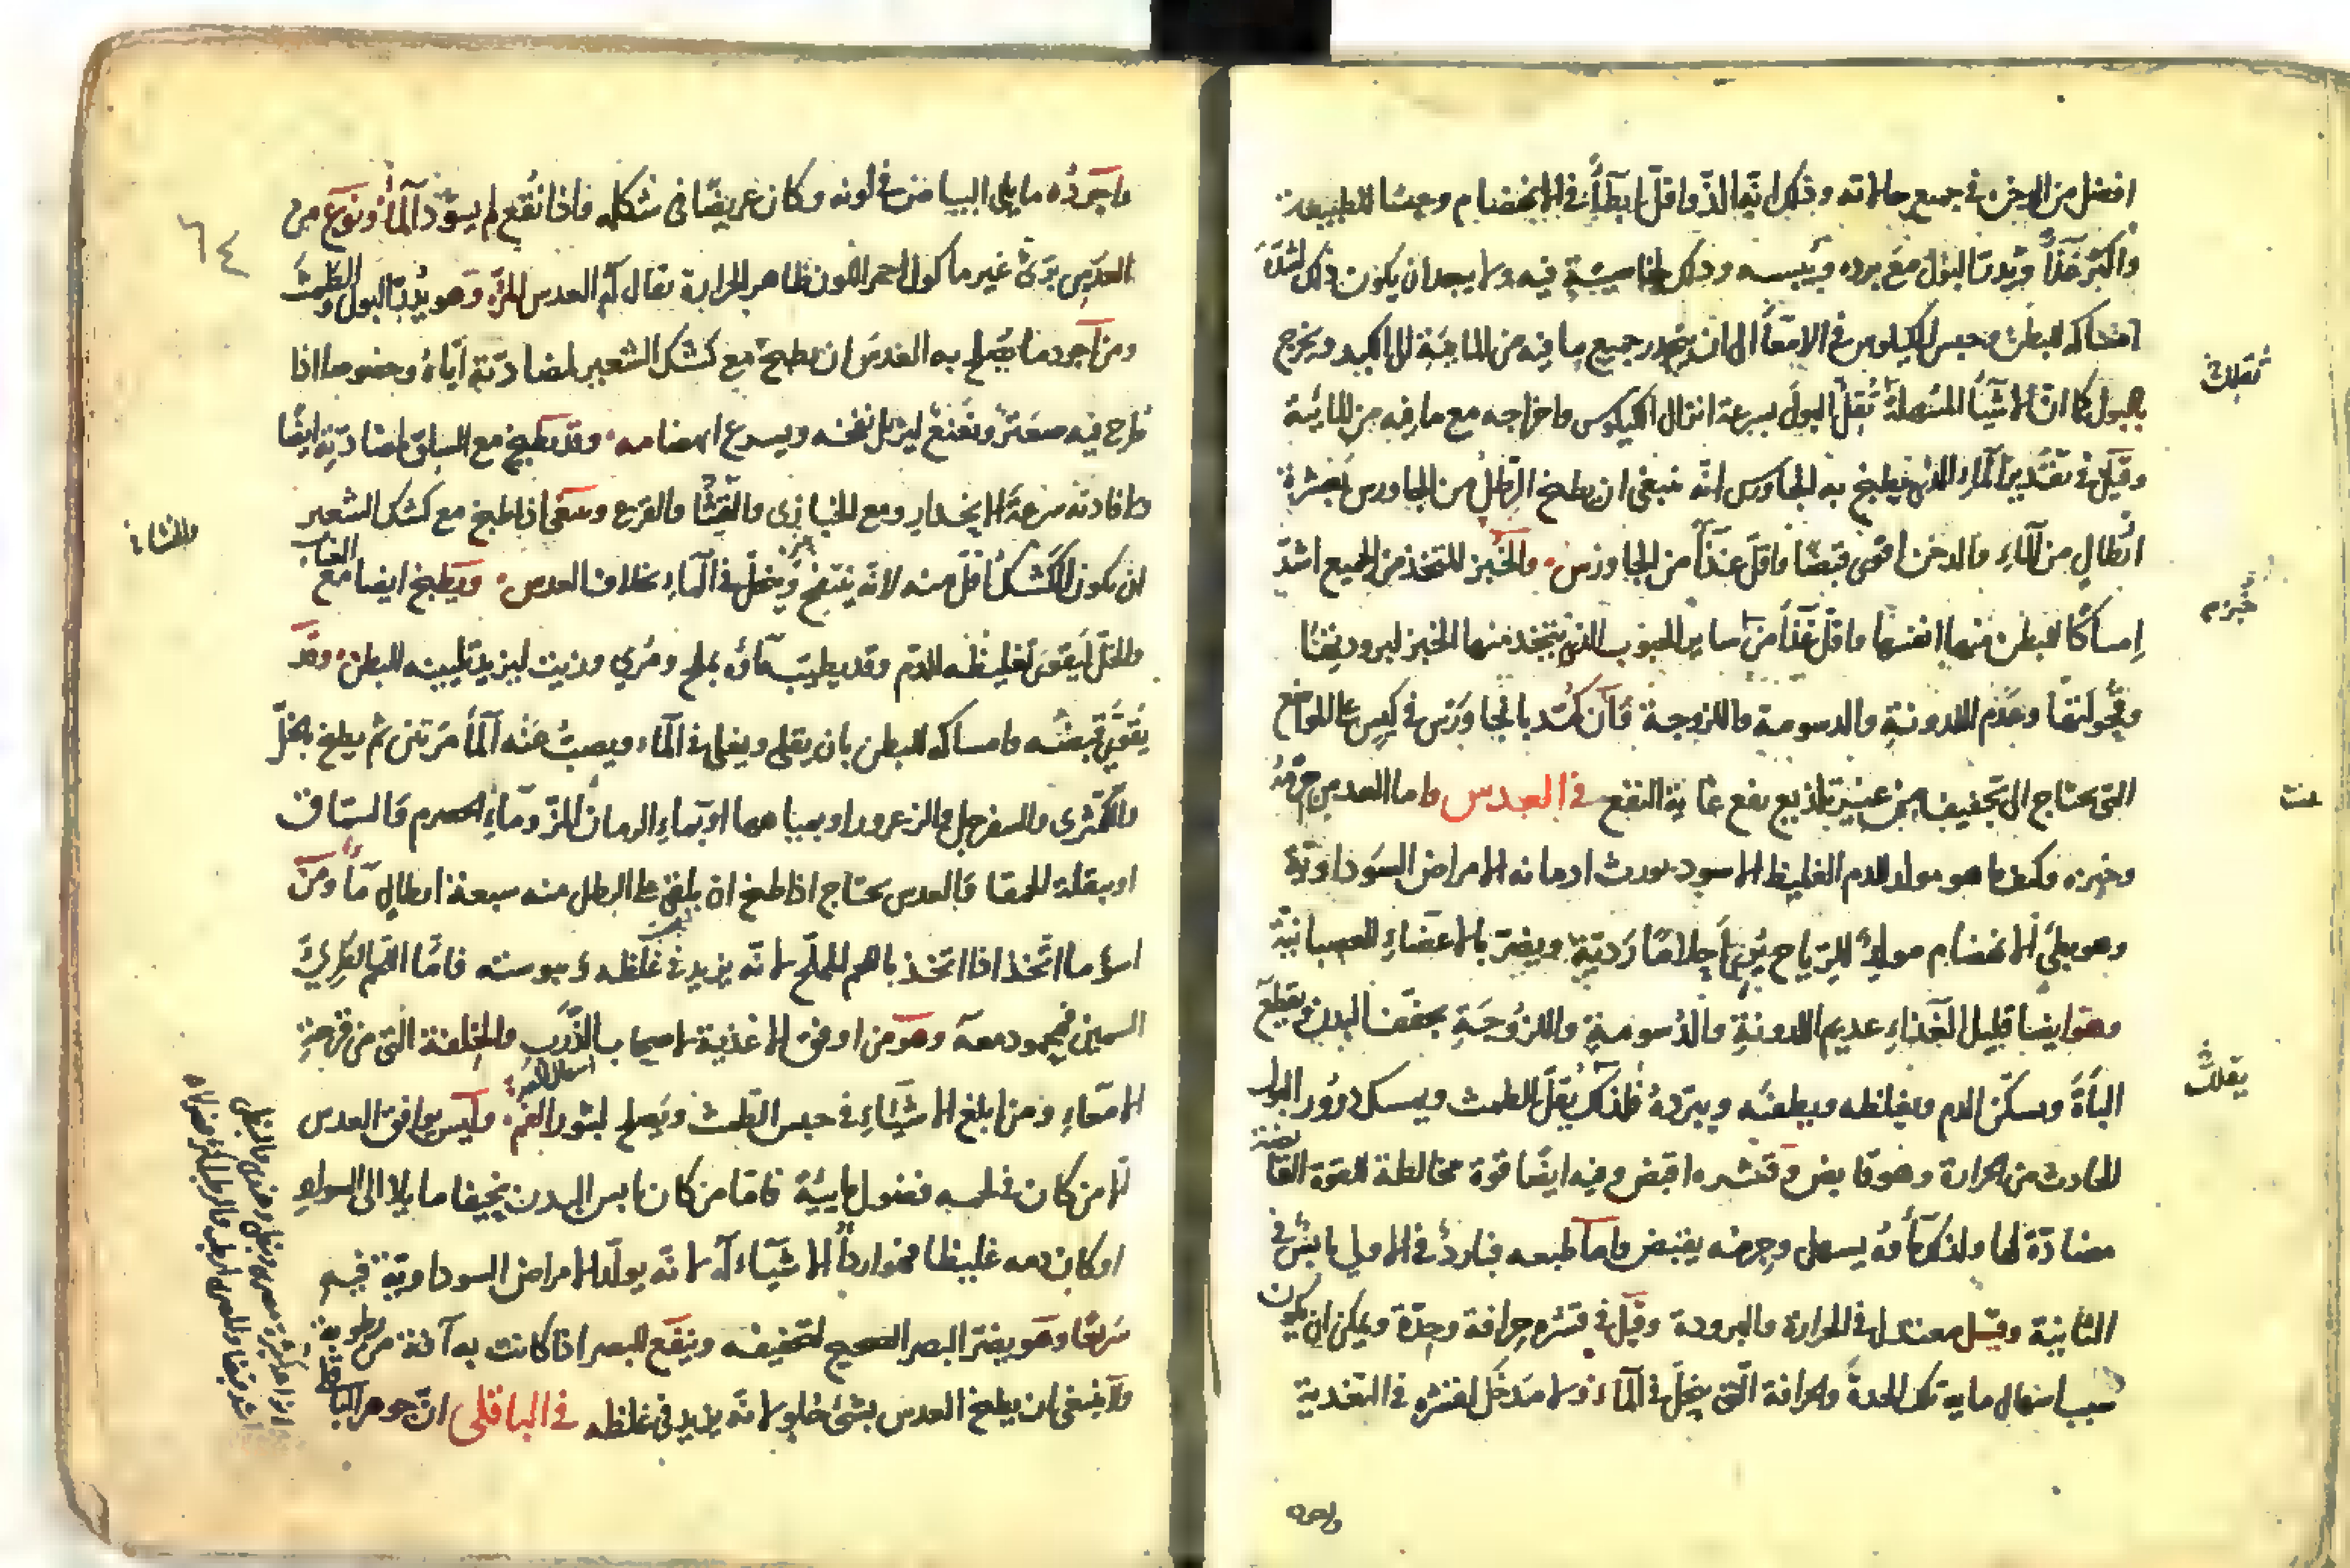 افضل من الدخن في جميع حالاته وذلك انه الذ واقل ابطأ في الانهضام وحبسا للطبيعة
واكثر غذاً ويدر البول مع برده ويبسه وذلك لخاصية فيه ولا يبعد ان يكون ذلك لشدة
امساكه للبطن وحبس الكيلوس في الامعاً الى ان ينحدر جميع ما فيه من المائية الى الكبد ويخرج
بالبول كما ان الاشيآ المسهلة تُقِلّ البول بسرعة انزال الكيلوس واخراجه مع ما فيه من المائية
وقيل في تقدير المآء الذي يطبخ به الجاورس انه ينبغي ان يطبخ الرطل من الجاورس بعشرة
ارطال من المآء والدخن اقوى قبضا واقل غذآً من الجاورس والخبز المتخذ من الجميع اشد
امساكا للبطن منها انفسها واقل غذآً من ساير الحبوب التي يتخذ منها الخبز لبرودتها
وقحولتها وعدم اللدونة والدسومة واللزوجة فان كُمّد بالجاورس في كيس على المواضع
التي تحتاج الى تجفيف من غير تلذيع نفع غاية النفع في العدس واما العدس
وخبزه وكلما هو مولد للدم الغليظ الاسود يورث ادمانه الامراض السوداوية
وهو بطئ الانهضام مولد للرياح يُرِي احلاما رَديّة ويضر بالاعضاء العصبانية
وهو ايضا قليل الغذاء عديم اللدونة والدسومة واللزوجة يجفف البدن ويقطع
الباآة ويسكن الدم ويغلظه ويطفئه ويبرده فلذلك يُقلّ الطمث ويمسك درور البول
الحادث من الحرارة وهو قابض وقشره اقبض وفيه ايضا قوة مخالطة للقوة القابضة
مضادة لها ولذلك مآؤه يسهل وجرمه يقبض واما طبعه فبارد في الاولى يابس في
الثانية وقيل معتدل في الحرارة والبرودة وقيل في قشره حرافة وحدّة ويمكن ان يكون
سبب اسهال مايه تلك الحدة والحرافة التي ينحل في المآء ولا مدخل لقشره في التغذية
واجوده
نقلت
خبزهم
يقلل
واجوده ما يلي البياض في لونه وكان عريضا في شكله فاذا نُقع لم يسوّد المآء ونوع من
العدس برّيّ غير ماكول احمر اللون ظاهر الحرارة يقال له العدس المرّ وهو يُدرّ البول والطمث
ومن اجود ما يُصلح به العدس ان يطبخ مع كشك الشعير لمضادّته ايّاه وخصوصا اذا
طُرح فيه صعتر ونعنع ليزيل نفخه ويسرع انهضامه وقد يطبخ مع السلق لمضادّته ايضا
وافادته سرعة الانحدار ومع الخبازى والقثا والقرع وينبغي اذا طبخ مع كشك الشعير
ان يكون الكشك اقل منه لانه ينتفخ وينحل في المآء بخلاف العدس ويطبخ ايضا مع العناب
والخل ليقوى تغليظه للدم وقد يطيب مآؤه بملح ومُري وزيت ليزيد تليينه للبطن وقد
يُقَوَّى قبضه وامساكه للبطن بان يقلى ويغلى في المآء ويصبّ عنه المآء مرتين ثم يطبخ بخل
والكمثرى والسفرجل والزعرور او بمياهها او بماء الرمان المزّ ومآء الحصرم والسماق
او ببقلة الحمقا والعدس يحتاج اذا طبخ ان يلقى على الرطل منه سبعة ارطال مآً ومن
اسؤ ما اتّخذ اذا اتّخذ باللحم المملّح لانه يزيد في غلظه ويبوسته فامّا اللحم الطريّ
السمين فمحمود معه وهو من اوفق الاغذية لاصحاب الذرب والخلفة التي من قرحة
الامعاء ومن ابلغ الاشياء في حبس الطمث ويصلح لبثور الفم وليس يوافق العدس
الا من كان في لحمه فضول مايية فاما من كان يابس البدن نحيفا مايلا الى السواد
او كان دمه غليظا فهو اردأ الاشيآء له لانه يولد الامراض السوداوية فيه
سريعا وهو يضر البصر الصحيح لتجفيفه وينفع البصر اذا كانت به آفة من رطوبة
ولا ينبغي ان يطبخ العدس بشئ حلو لانه يزيد في غلظه في الباقلى ان جوهر الباقلى
٦٤